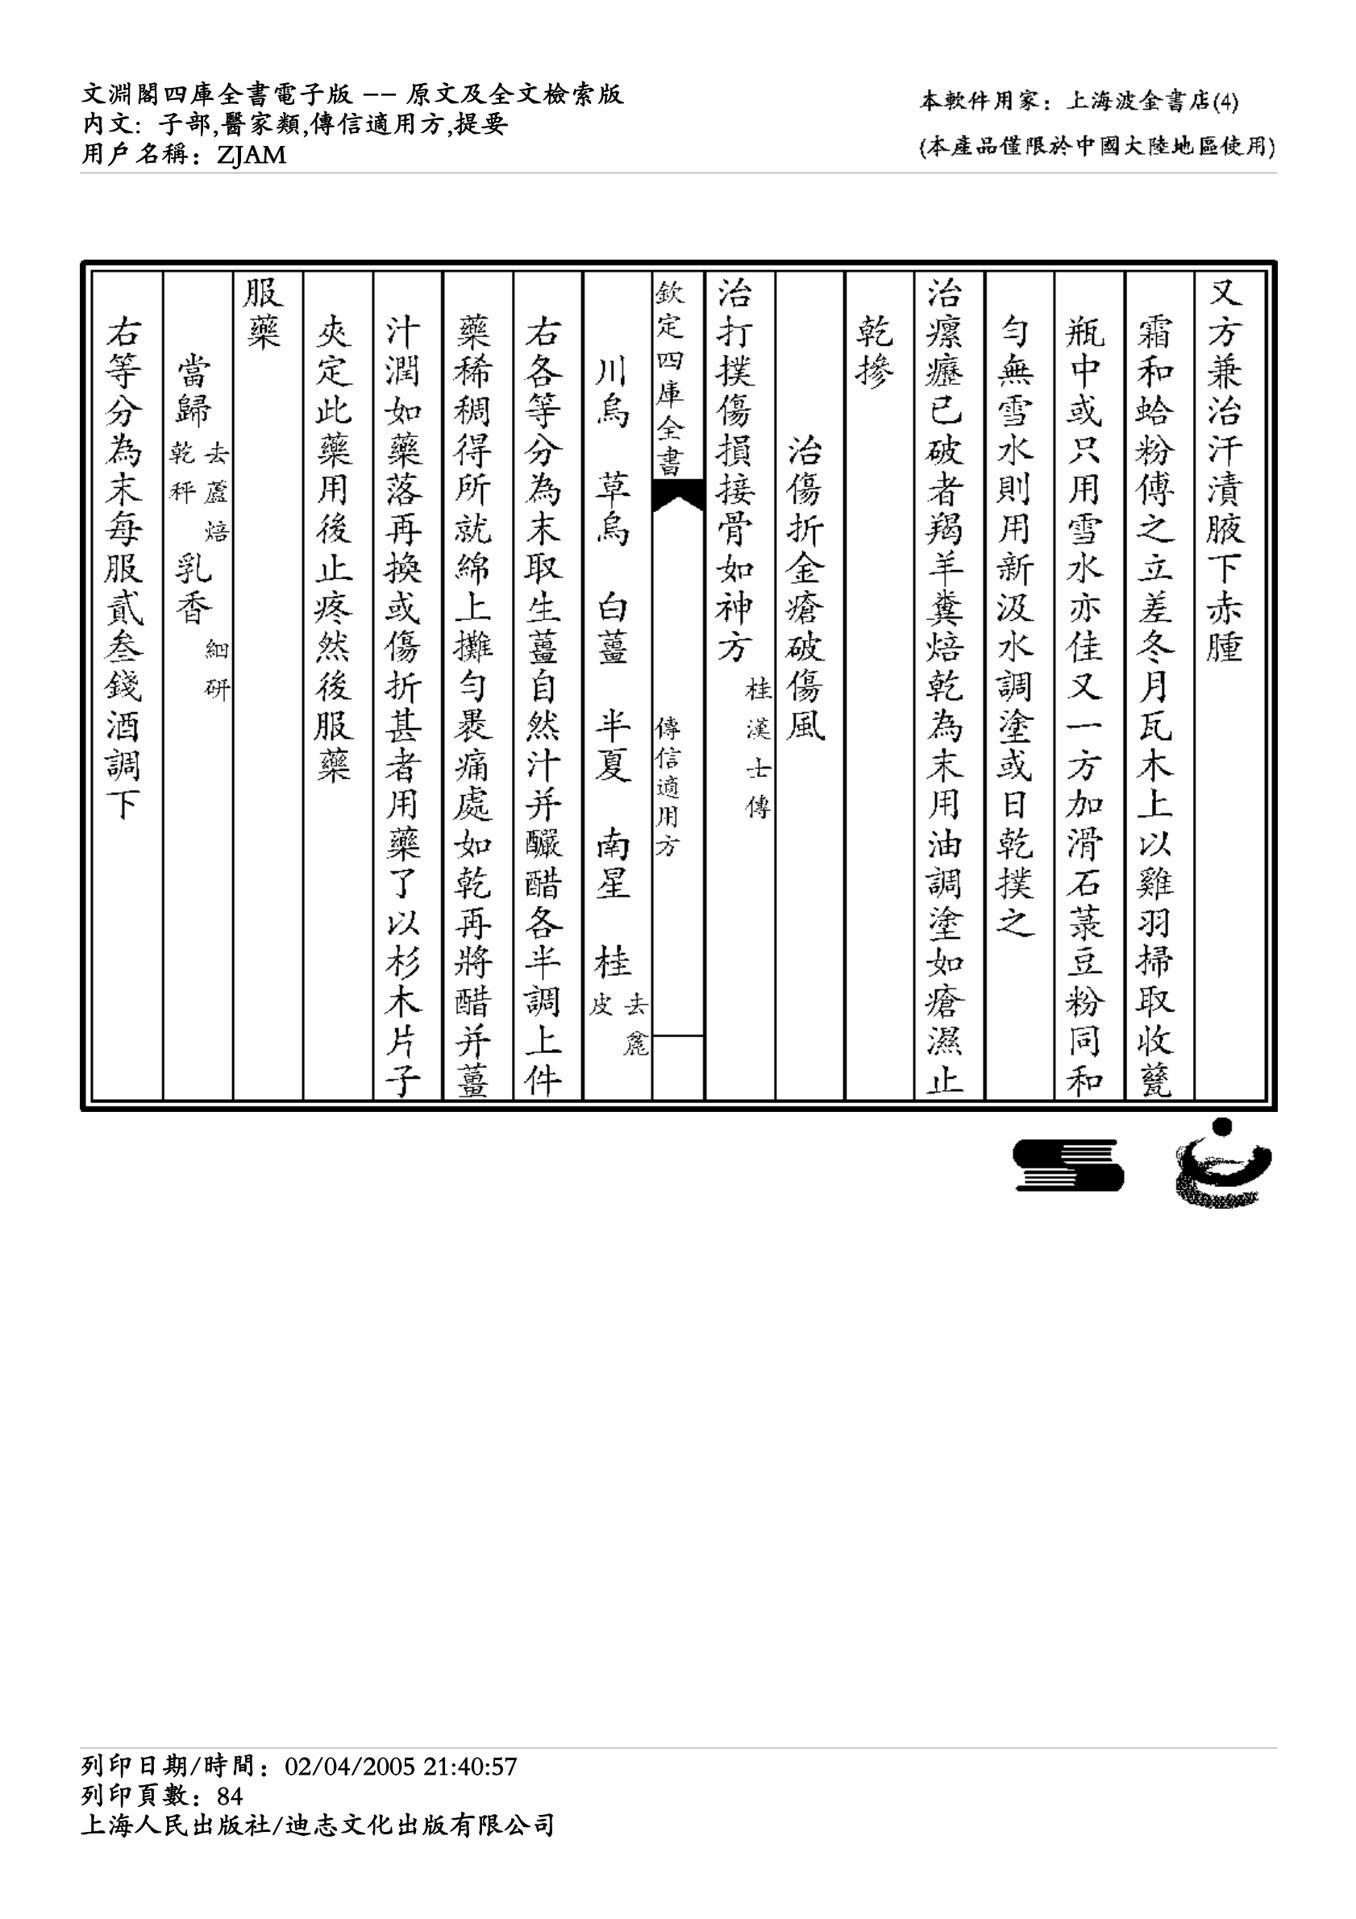 文淵閣四庫全書電子版 -- 原文及全文檢索版
內文: 子部,醫家類,傳信適用方,提要
用戶名稱: ZJAM
本軟件用家: 上海波金書店(4)
(本產品僅限於中國大陸地區使用)
又方兼治汗漬腋下赤腫
霜和蛤粉傅之立差冬月瓦木上以雞羽掃取收甆
瓶中或只用雪水亦佳又一方加滑石菉豆粉同和
勻無雪水則用新汲水調塗或日乾撲之
治瘰癧已破者羯羊糞焙乾為末用油調塗如瘡濕止
乾摻
治傷折金瘡破傷風
治打撲傷損接骨如神方 桂漢士傳
欽定四庫全書 傳信適用方
川烏 草烏 白薑 半夏 南星 桂 去麄皮
右各等分為末取生薑自然汁并釅醋各半調上件
藥稀稠得所就綿上攤勻褁痛處如乾再將醋并薑
汁潤如藥落再換或傷折甚者用藥了以杉木片子
夾定此藥用後止疼然後服藥
服藥
當歸 去蘆焙乾秤 乳香 細研
右等分為末每服貳叁錢酒調下
列印日期/時間: 02/04/2005 21:40:57
列印頁數: 84
上海人民出版社/迪志文化出版有限公司